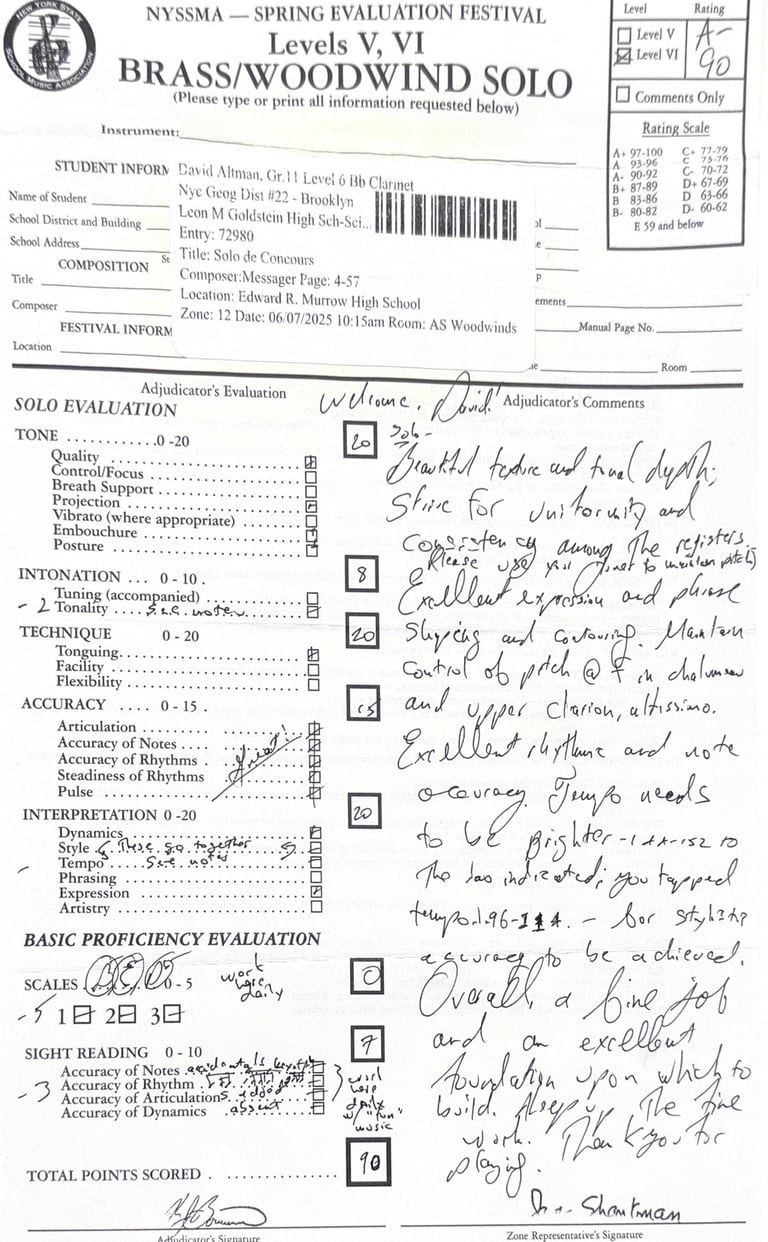 NEW YORK STATE SCHOOL MUSIC ASSOCIATION
NYSSMA — SPRING EVALUATION FESTIVAL
Levels V, VI
BRASS/WOODWIND SOLO
(Please type or print all information requested below)
Level Rating
Level V
Level VI
A-
90
Comments Only
Rating Scale
A+ 97-100 C+ 77-79
A 93-96 C 73-76
A- 90-92 C- 70-72
B+ 87-89 D+ 67-69
B 83-86 D 63-66
B- 80-82 D- 60-62
E 59 and below
Instrument:
STUDENT INFORM
Name of Student
School District and Building
School Address
COMPOSITION
Title
Composer
FESTIVAL INFORM
Location
David Altman, Gr.11 Level 6 Bb Clarinet
Nyc Geog Dist #22 - Brooklyn
Leon M Goldstein High Sch-Sci...
Entry: 72980
Title: Solo de Concours
Composer:Messager Page: 4-57
Location: Edward R. Murrow High School
Zone: 12 Date: 06/07/2025 10:15am Room: AS Woodwinds
ements
Manual Page No.
Room
Adjudicator's Evaluation
Welcome, David!
Adjudicator's Comments
SOLO EVALUATION
TONE ...........0 -20
20
Quality
Control/Focus
Breath Support
Projection
Vibrato (where appropriate)
Embouchure
Posture
INTONATION ... 0 - 10
8
Tuning (accompanied)
- 2 Tonality .... see notes
TECHNIQUE 0 - 20
20
Tonguing
Facility
Flexibility
ACCURACY .... 0 - 15
15
Articulation
Accuracy of Notes
Accuracy of Rhythms
Steadiness of Rhythms
Pulse
INTERPRETATION 0 -20
20
Dynamics
Style These go together
Tempo see notes
Phrasing
Expression
Artistry
BASIC PROFICIENCY EVALUATION
SCALES 0 - 5
work
here
daily
0
-5 1 2 3
SIGHT READING 0 - 10
7
Accuracy of Notes accidentals
Accuracy of Rhythm
Accuracy of Articulations
Accuracy of Dynamics absent
- 3
work
here
daily
w/ "fun"
music
TOTAL POINTS SCORED
90
Adjudicator's Signature
Beautiful texture and tonal depth;
Strive for uniformity and
consistency among the registers.
Please use
Excellent expression and phrase
shaping and contouring. Maintain
control of pitch @ f in chalumeau
and upper clarion, altissimo.
Excellent rhythmic and note
accuracy. Tempo needs
to be brighter -144-152 to
The indicated; you tapped
tempo 96-114. - for stylistic
accuracy to be achieved.
Overall, a fine job
and an excellent
foundation upon which to
build. Keep up The fine
work. Thank you for
playing.
Shankman
Zone Representative's Signature